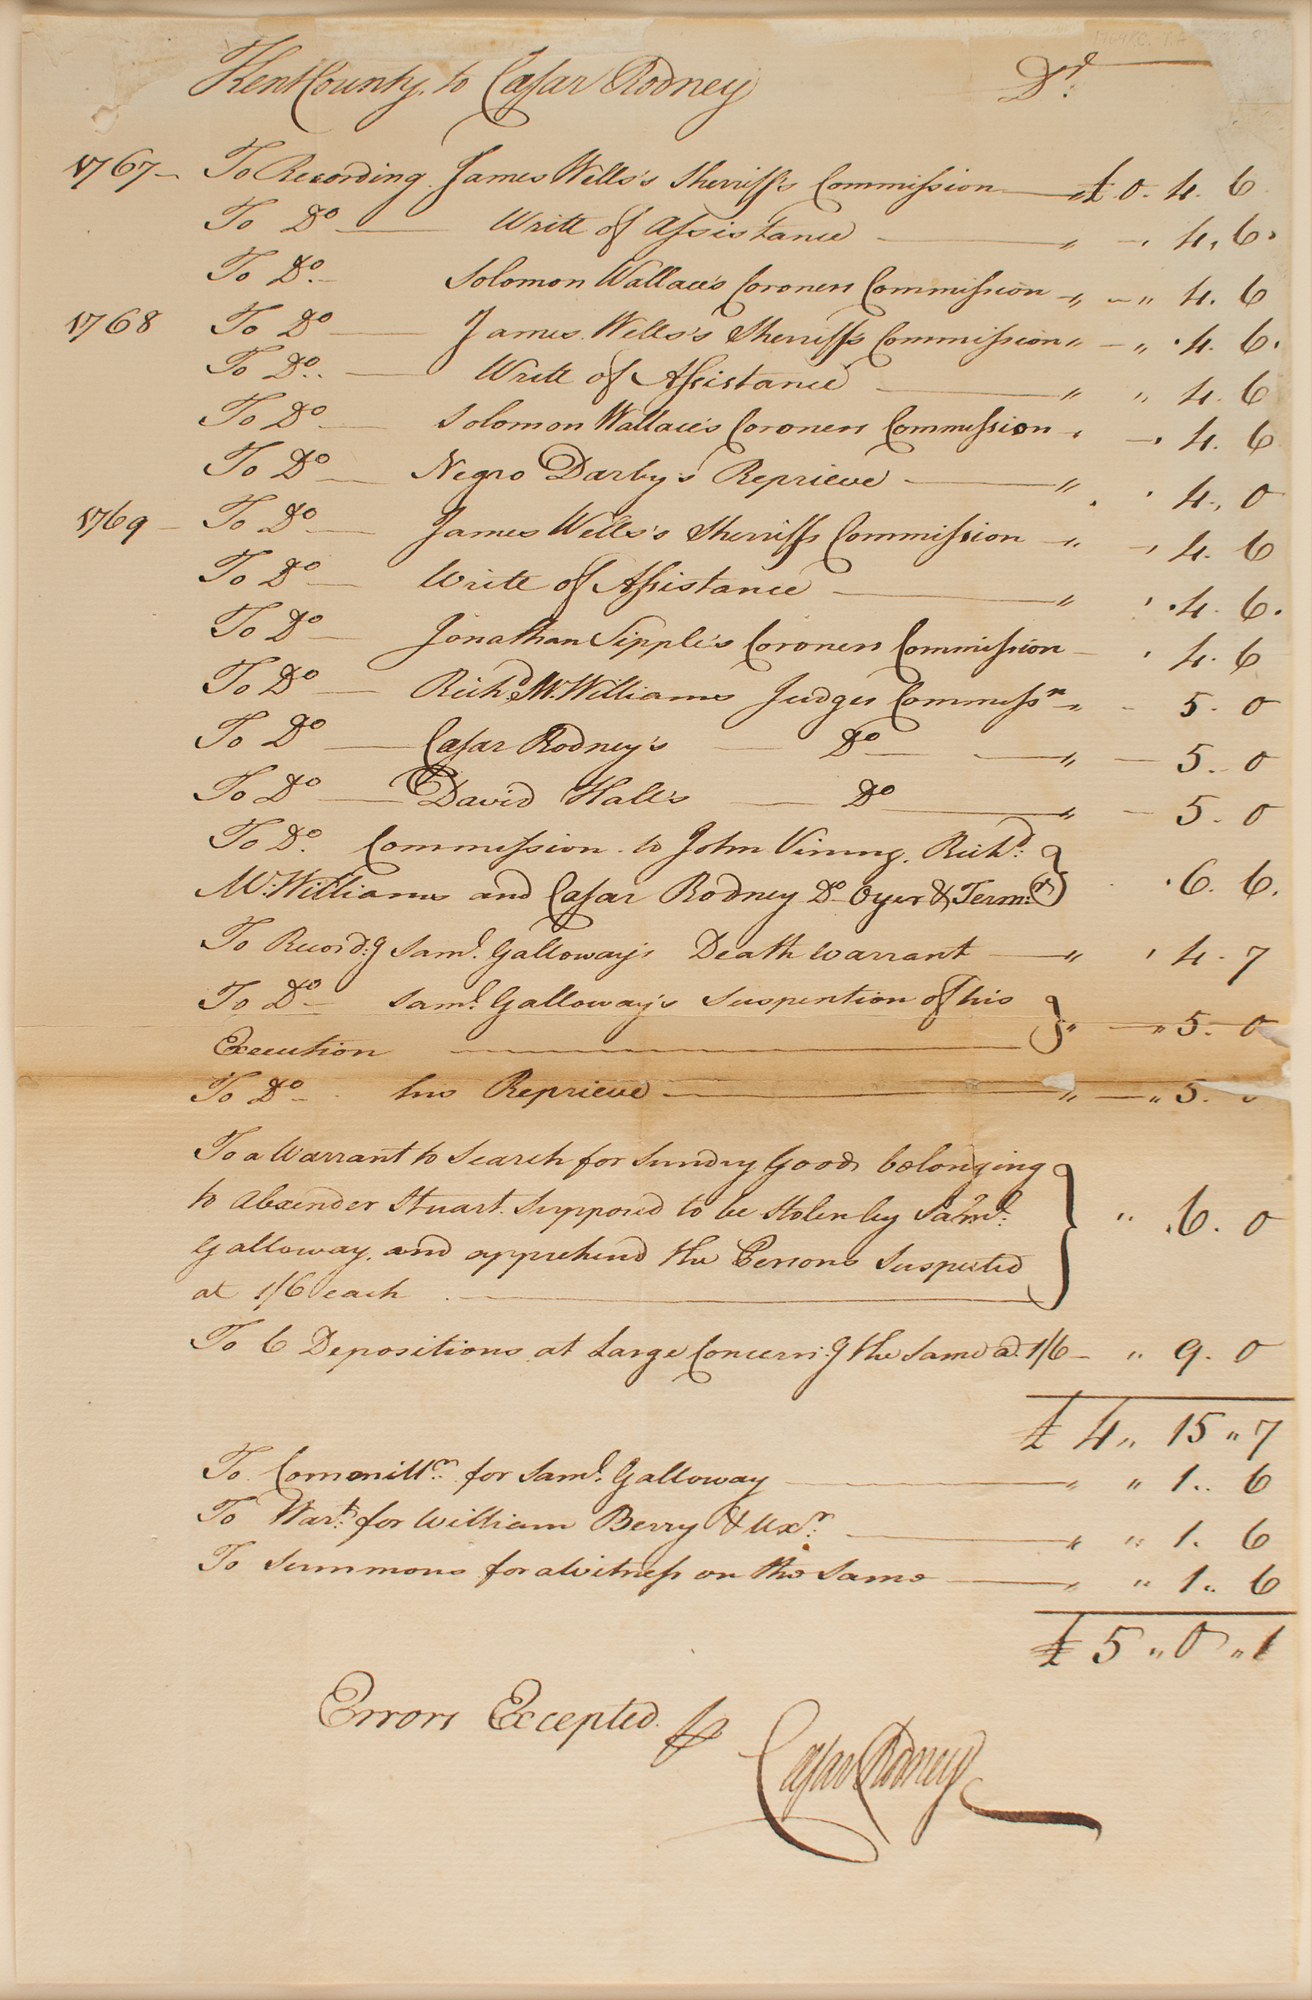 Kent County, to Cæsar Rodney Dr.
1767 — To Recording James Wells's Sherriff's Commission — " £ 0. 4. 6
To Do — Writt of Assistance — " — . 4. 6.
To Do. — Solomon Wallace's Coroners Commission — " — " 4. 6
1768 To Do — James Wells's Sherriffs Commission " — " 4. 6.
To Do. — Writt of Assistance — " " 4. 6
To Do. — Solomon Wallace's Coroners Commission " — . 4. 6
To Do — Negro Darby's Reprieve — " . ' 4. 0
1769 — To Do — James Wells's Sherriffs Commission — " — ' 4. 6
To Do — Writt of Assistance — " ' 4. 6.
To Do — Jonathan Sipple's Coroners Commission — ' 4. 6
To Do — Richd. McWilliams Judges Commissn — " - 5. 0
To Do — Cæsar Rodney's — Do — " — 5. 0
To Do — David Hall's — Do — " — 5. 0
To Do. Commission to John Vining, Richd.
McWilliams and Cæsar Rodney Do Oyer & Termr. . 6. 6.
To Record:g Saml. Galloway's Death Warrant — " ' 4. 7
To Do — Saml. Galloway's Suspention of his
Execution — " — " 5. 0
To Do — his Reprieve — " — " 5.
To a Warrant to Search for Sundry Goods belonging
to Alexender Stuart. Supposed to be Stolen by Saml:
Galloway, and apprehend the Persons Suspected
at 1/6 each — " 6. 0
To 6 Depositions at Large Concern:g the Same a. 1/6 — " 9. 0
£ 4 " 15 " 7
To Committr. for Saml. Galloway — " " 1.. 6
To Wart. for William Berry & Uxr. — " " 1. 6
To Summons for a Witness on the Same — " " 1.. 6
£ 5 " 0 " 1
Errors Excepted. Pr
Cæsar Rodney